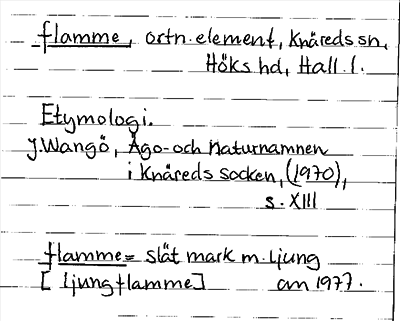 flamme, ortn. element, Knäreds sn,
Höks hd, Hall. l.
Etymologi.
J. Wangö, Ägo- och Naturnamnen
i Knäreds socken, (1970),
s. XIII
flamme = slät mark m. ljung
[ ljungflamme] am 1977.